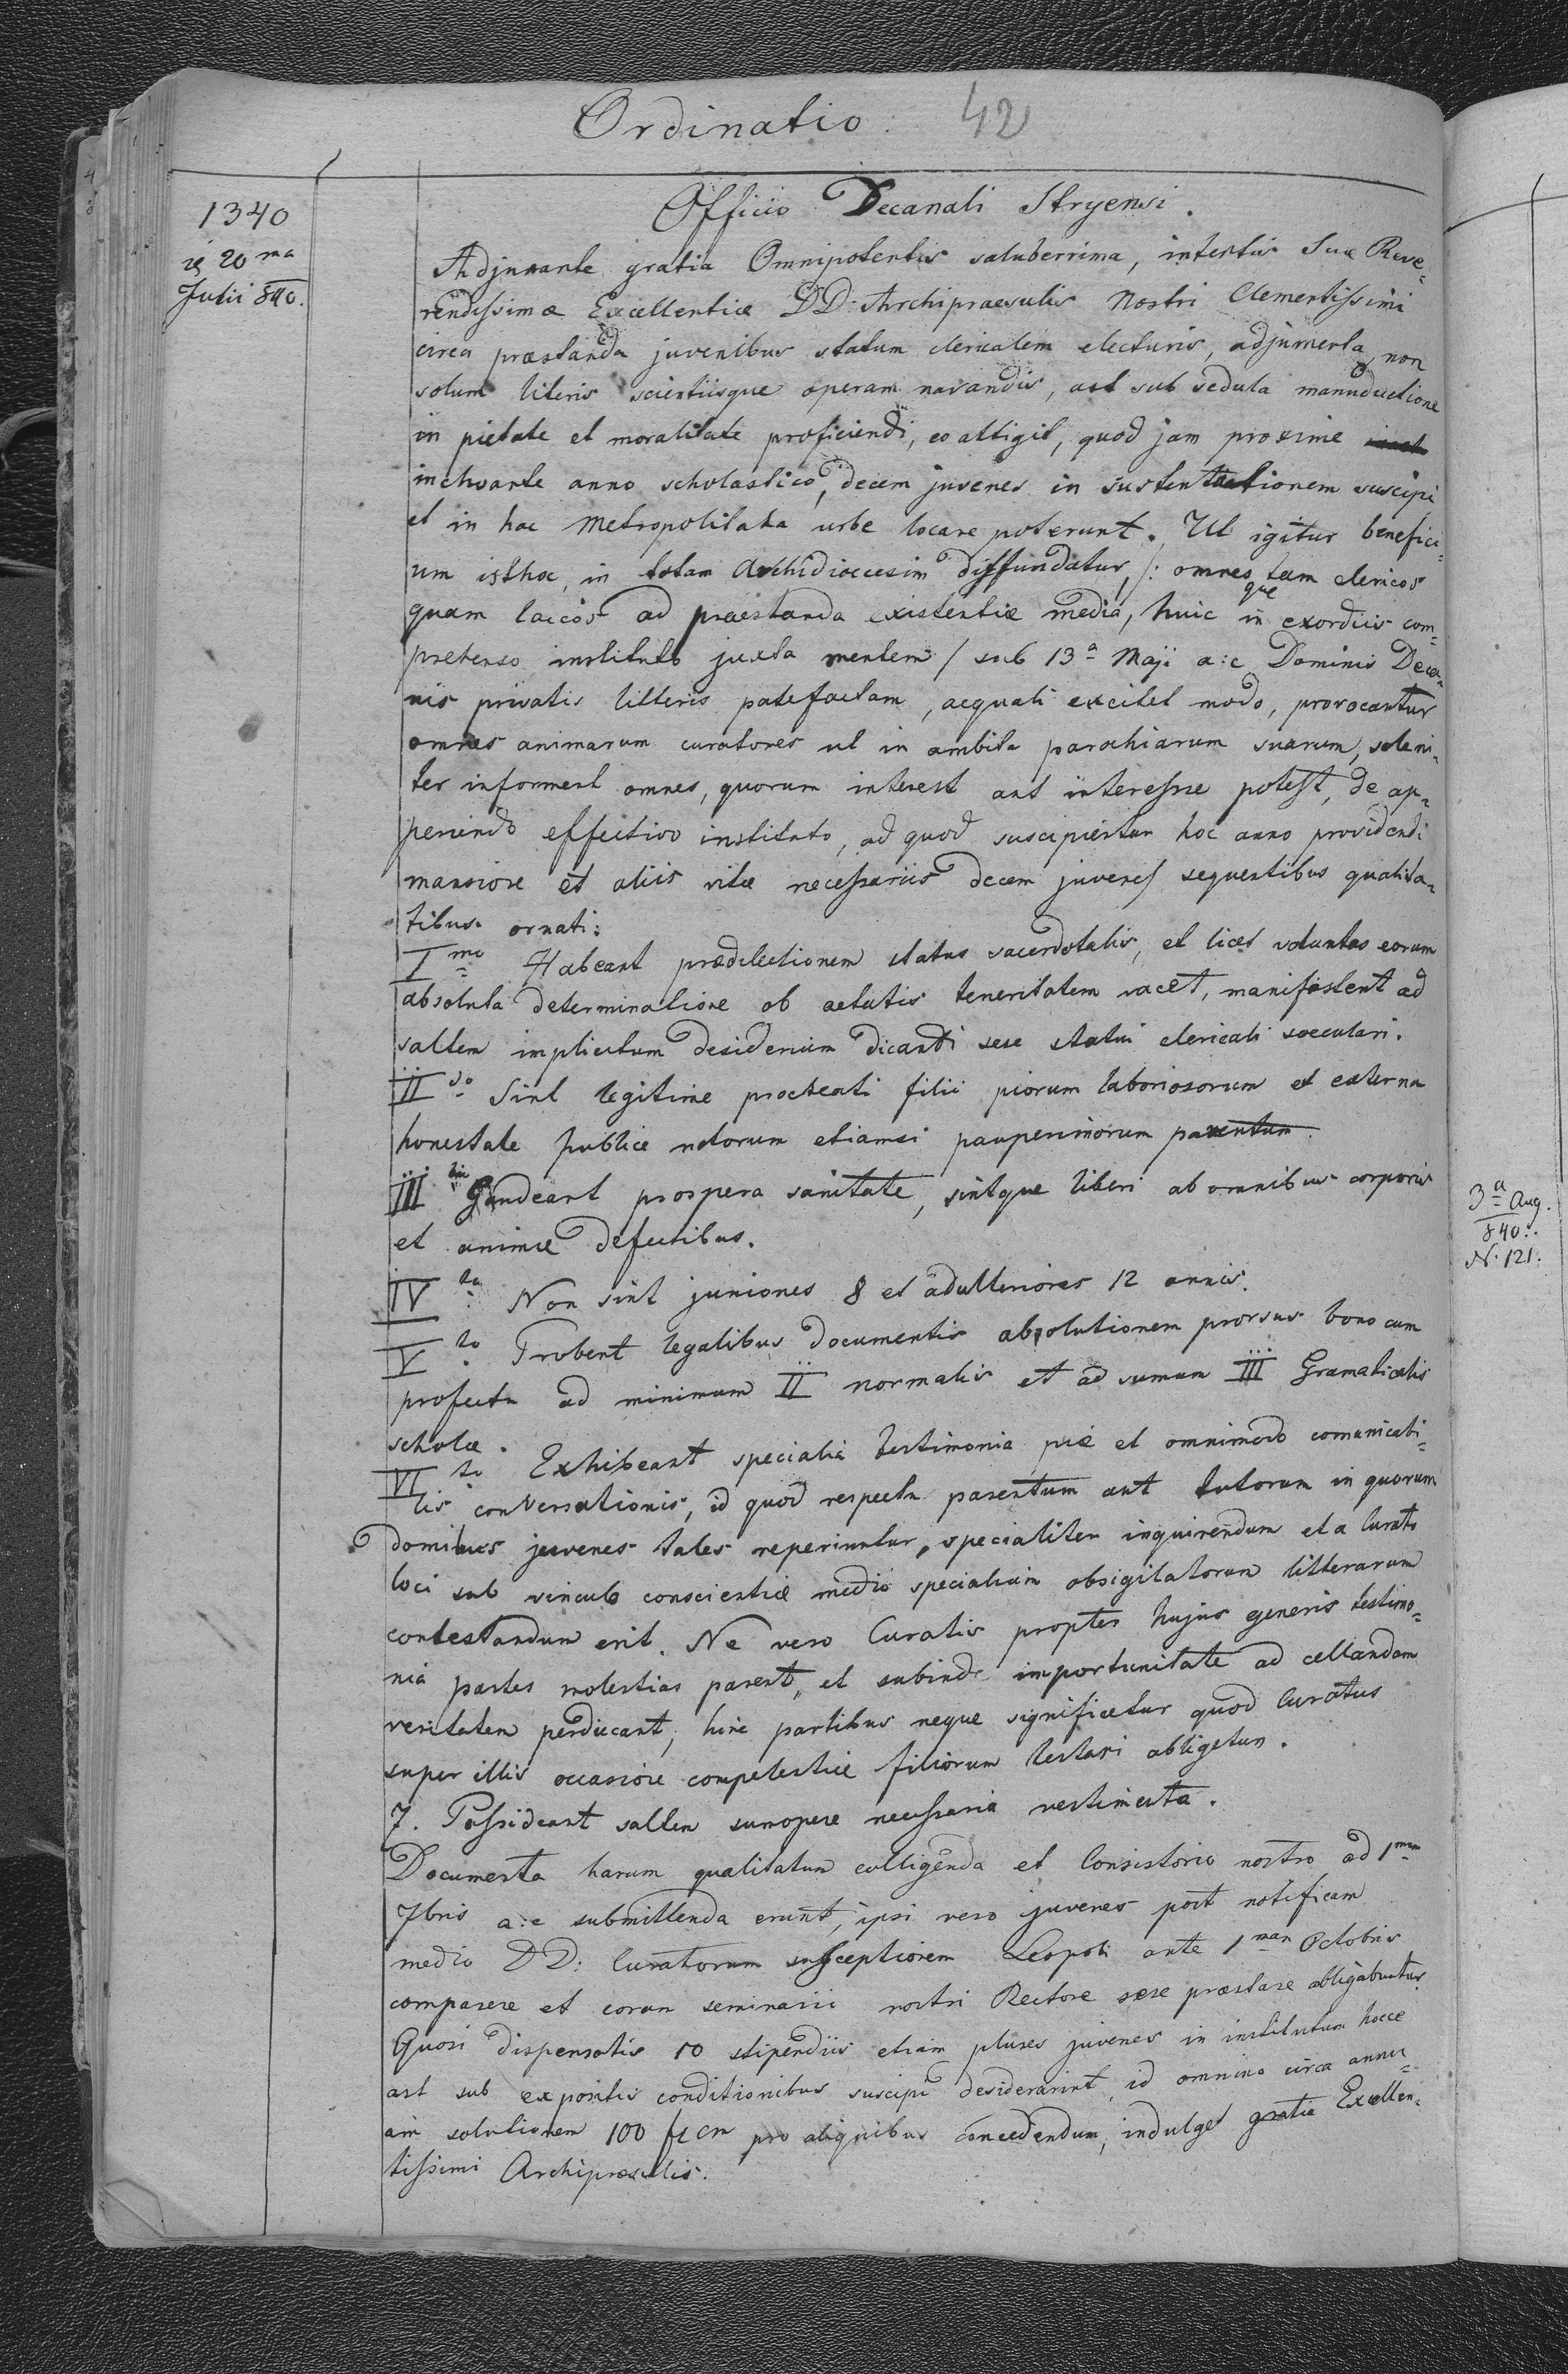 Ordinatio. 42
1340
20 ma
Julii 840.
Officio Decanali Stryensi.
Adjuvante gratia Omnipotentis saluberrima, intentis Suæ Reve=
rendissimæ Excellentiæ DD Archipraesulis Nostri Clementissimi
circa præstanda juvenibus statum clericalem electuris, adjumenta, non
solum literis scientiisque operam navandis, ast sub sedula manuductione
in pietate et moralitate proficiendi, eo attigit, quod jam proxime
inchoante anno scholastico, decem juvenes in sustentationem suscipi
et in hac Metropolitana urbe locare poterunt. Ut igitur benefici=
um isthoc, in totam Archidioecesim diffundatur, /: omnesque tam clericos
quam laicos ad praestanda existentiæ media, huic in exordiis com=
pretenso instituto juxta mentem / sub 13a Maji a:c Dominis Deca=
nis privatis litteris patefactam, aequali excitet modo, provocantur
omnes animarum curatores ut in ambitu parochiarum suarum, soleni=
ter informent omnes, quorum interest aut interesse potest, de ap=
periendo effectivo instituto, ad quod suscipientur hoc anno providendi
mansione et aliis vitæ necessariis decem juvenes sequentibus qualita=
tibus ornati:
I mo Habeant prædilectionem status sacerdotalis, et licet voluntas eorum
absoluta determinatione ob aetatis teneritatem vacet, manifestent ad
saltem implicitum desiderium dicandi sese statui clericali soeculari.
II do Sint legitime procreati filii piorum laboriosorum et externa
honestate publice notorum etiamsi pauperimorum parentum.
III tio Gaudeant prospera sanitate, sintque liberi ab omnibus corporis
et animæ defectibus.
IV to Non sint juniores 8 et adultiores 12 annis.
V to Probent legalibus documentis absolutionem prorsus bono cum
profectu ad minimum II normalis et ad sumum III Gramaticalis
scholæ.
VI to Exhibeant specialia testimonia piæ et omnimodo comunicabi=
lis conversationis, id quod respectu parentum aut tutorum in quorum
domibus juvenes tales reperiuntur, specialiter inquirendum et a Curato
loci sub vinculo conscientiæ medio specialium obsigilatorum litterarum
contestandum erit. Ne vero Curatis propter hujus generis testimo=
nia partes molestias parent, et subinde importunitate ad cellandam
veritatem perducant, hinc partibus neque significetur quod Curatus
super illis occasione competentiæ filiorum testari obligetur.
7. Possideant saltem sumopere necessaria vestimenta.
Documenta harum qualitatum colligenda et Consistorio nostro ad 1mam
7bris a:c submittenda erunt, ipsi vero juvenes post notificam
medio DD: Curatorum susceptionem Leopoli ante 1mam Octobris
comparere et coram seminarii nostri Rectore sese præstare obligabuntur.
Quosi dispensatis 10 stipendiis etiam plures juvenes in institutum hocce
ast sub expositis conditionibus suscipi desiderarint, id omnino circa annu=
am solutionem 100 fl cm pro aliquibus concedendum, indulget gratia Excellen=
tissimi Archipræsulis.
3a Aug.
840.
N. 121.